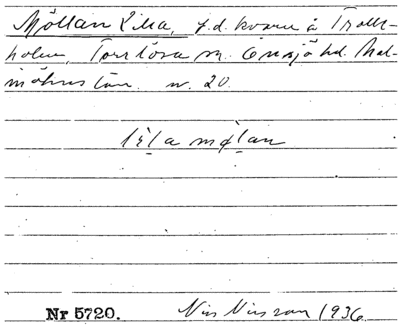 Möllan Lilla, f.d. kvarn å Trolle-
holm, Torrlösa sn. Onsjö hd. Mal-
möhus län. nr. 20.
lila mølan
Nr 5720. Nils Nilsson 1936.